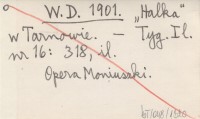 W. D. 1901. „Halka"
w Tarnowie. — Tyg. Il.
nr 16: 318, il.
Opera Moniuszki.